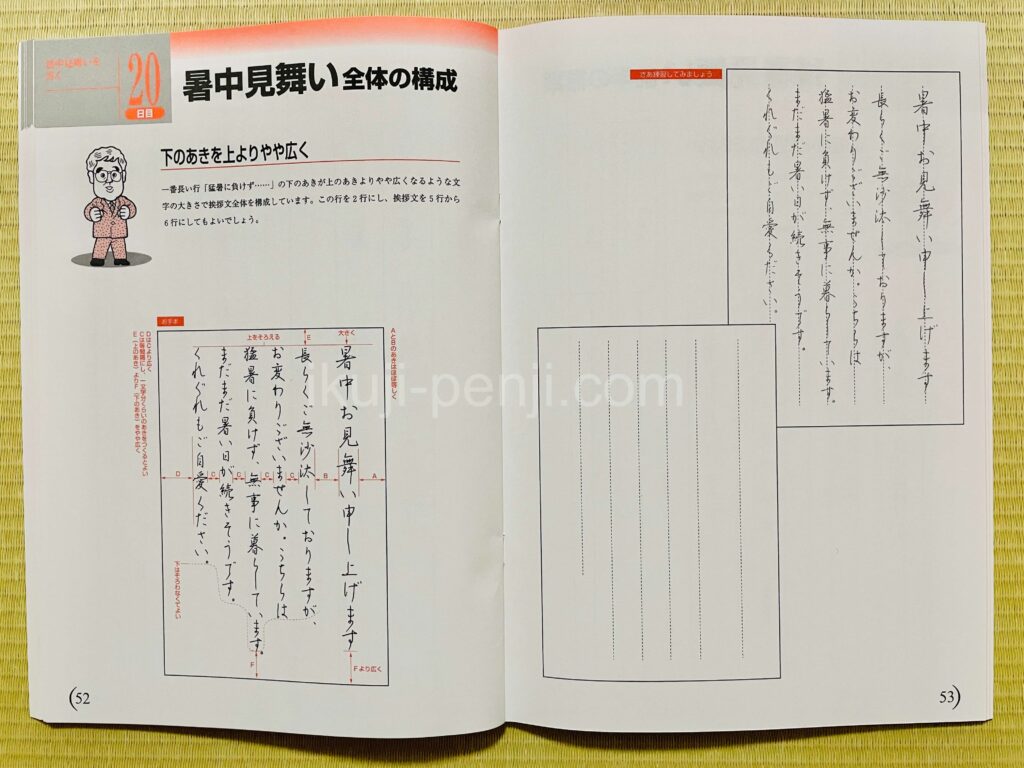 暑中見舞いを
書く
20
日目
暑中見舞い 全体の構成
下のあきを上よりやや広く
一番長い行「猛暑に負けず……」の下のあきが上のあきよりやや広くなるような文
字の大きさで挨拶文全体を構成しています。この行を2行にし、挨拶文を5行から
6行にしてもよいでしょう。
お手本
AとBのあきはほぼ等しく
大きく
E
上をそろえる
暑中お見舞い申し上げます
長らくご無沙汰しておりますが、
お変わりございませんか。こちらは
猛暑に負けず、無事に暮らしています。
まだまだ暑い日が続きそうです。
くれぐれもご自愛ください。
D
C
C
C
C
B
A
下はそろわなくてよい
F
Fより広く
DはCより広く
Cは等間隔にし、一文字分くらいのあきをつくるとよい
E(上のあき)よりF(下のあき)をやや広く
52
さあ練習してみましょう
暑中お見舞い申し上げます
長らくご無沙汰しておりますが、
お変わりございませんか。こちらは
猛暑に負けず、無事に暮らしています。
まだまだ暑い日が続きそうです。
くれぐれもご自愛ください。
53
ikuji-penji.com